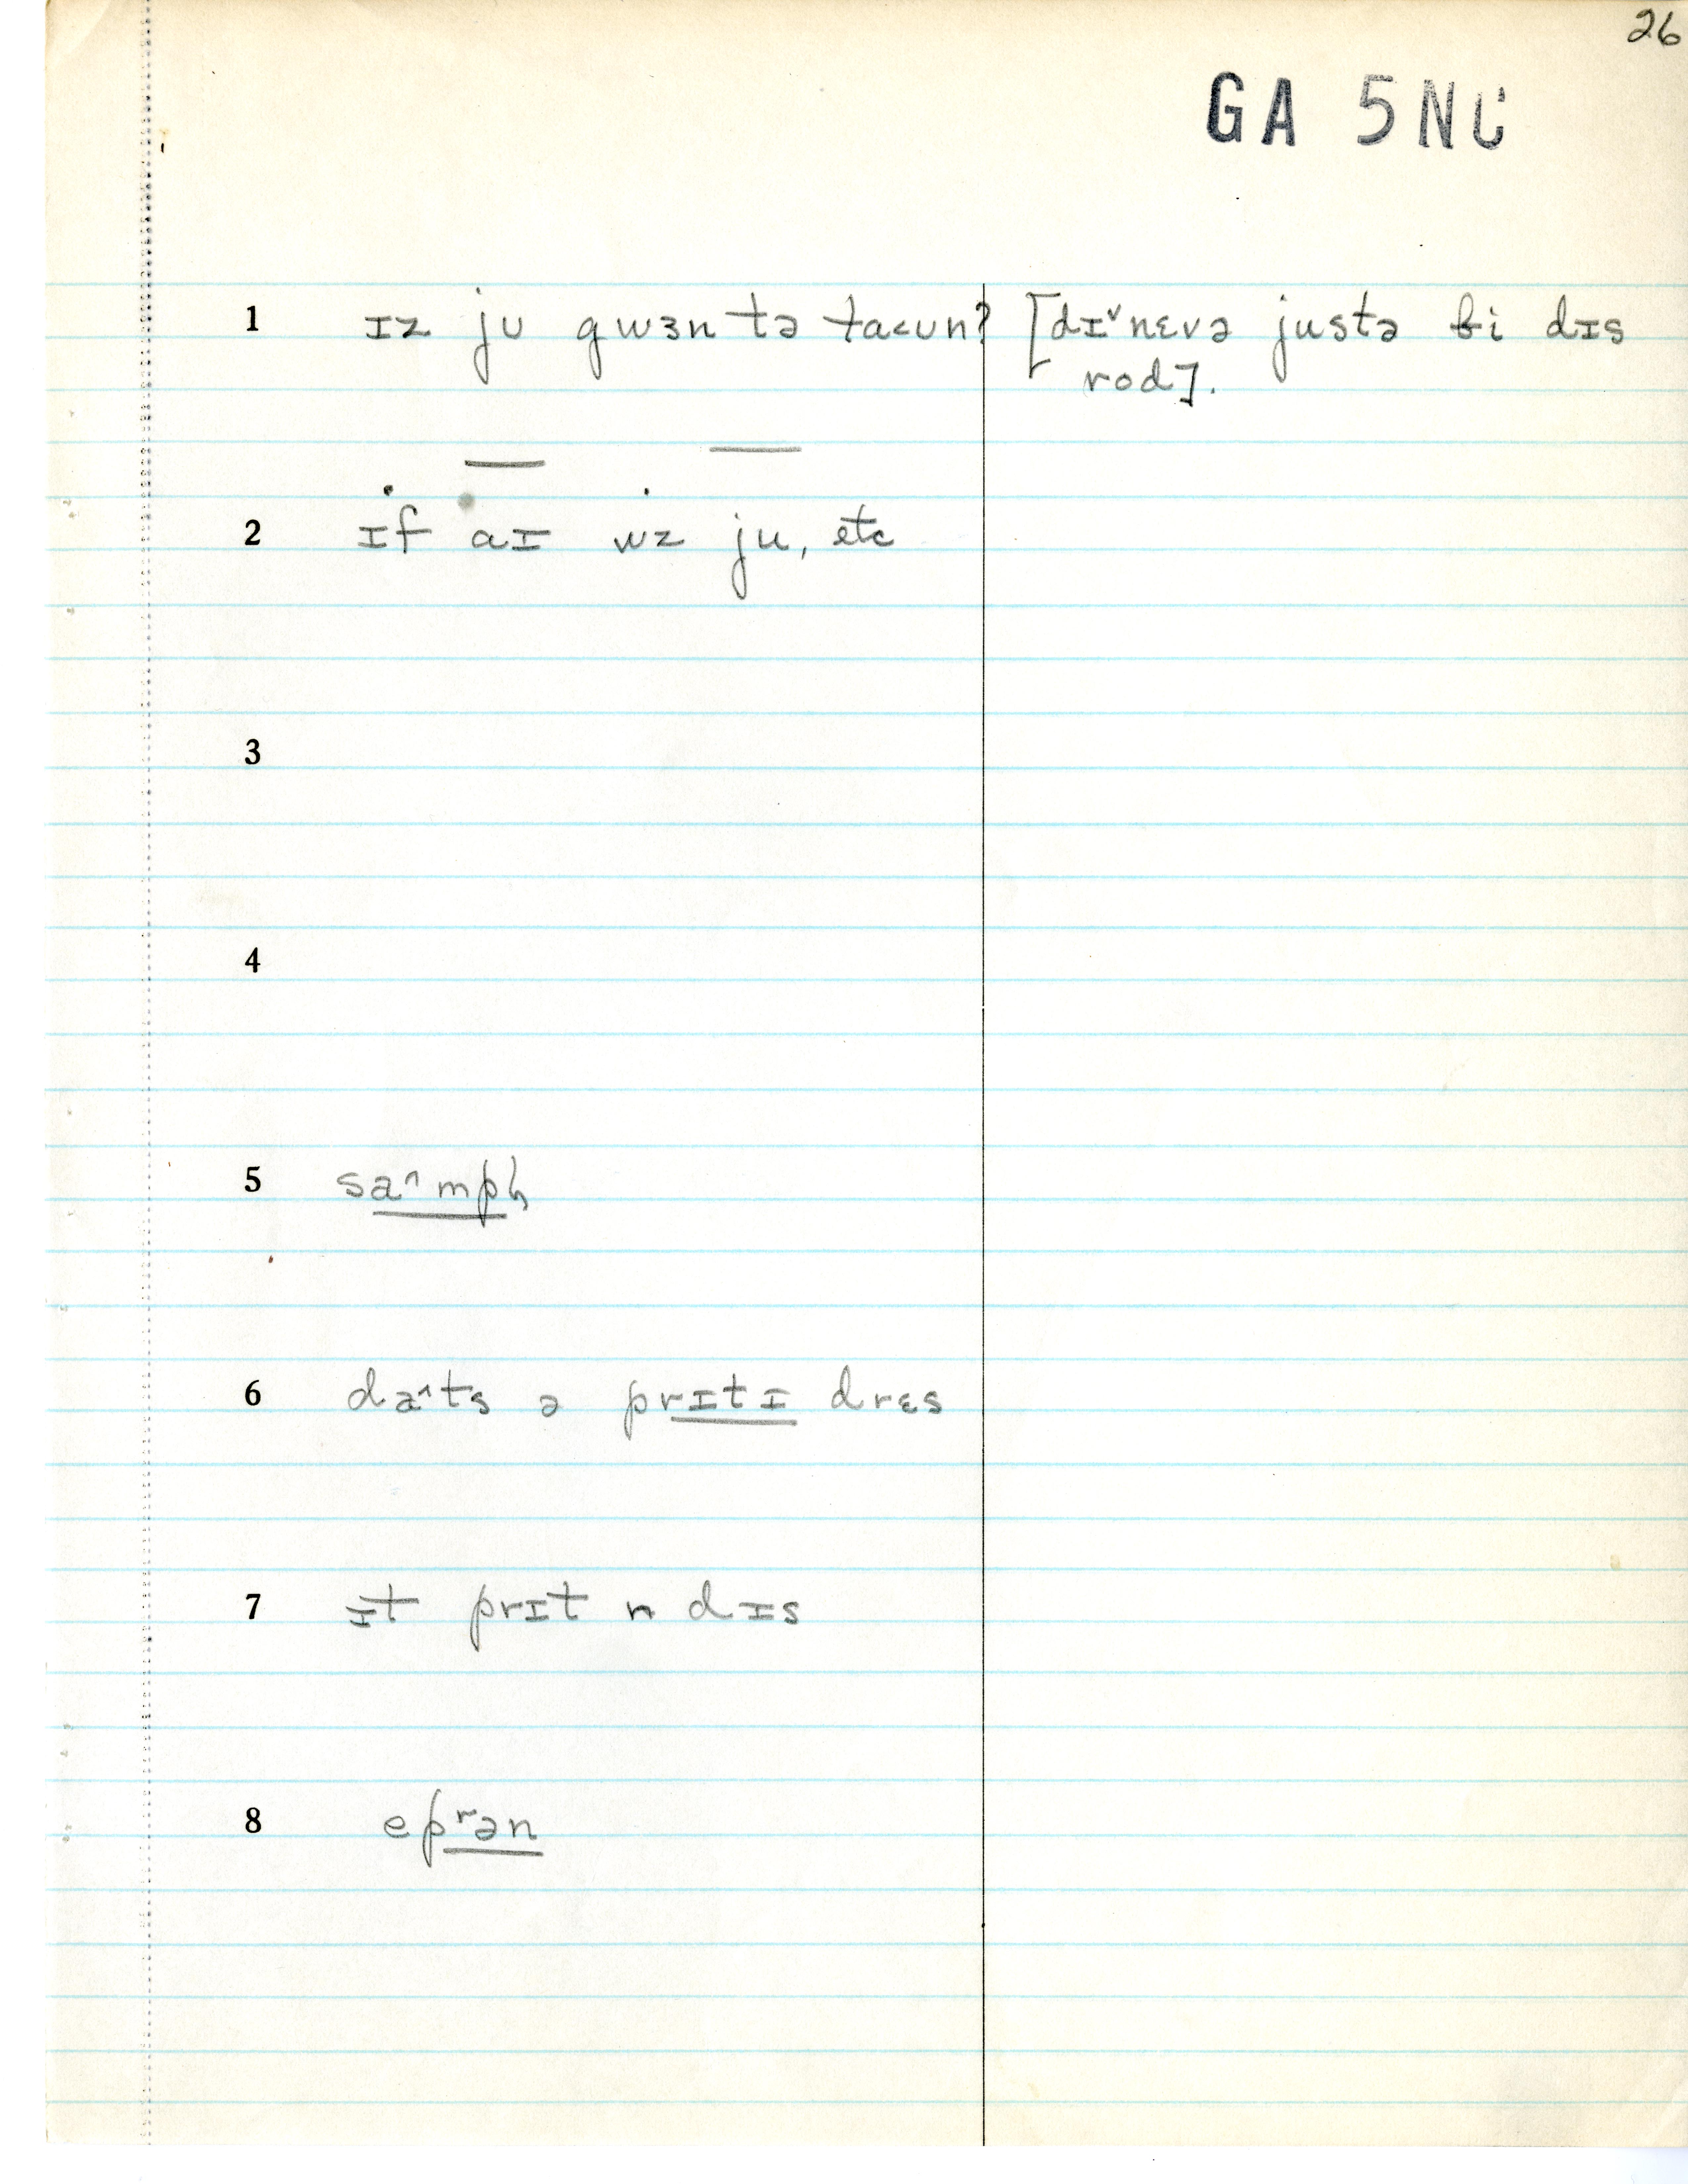 26
GA 5NC
1 ɪz ju gwɜn tə ta˂un? [dɪˇ nɛvə justə bi dɪs
rod].
2 ɪf aɪ wz ju, etc
3
4
5 sa^mpḥ
6 da^ts ə prɪtɪ drɛs
7 ɪt prɪt n dɪs
8 epʳən